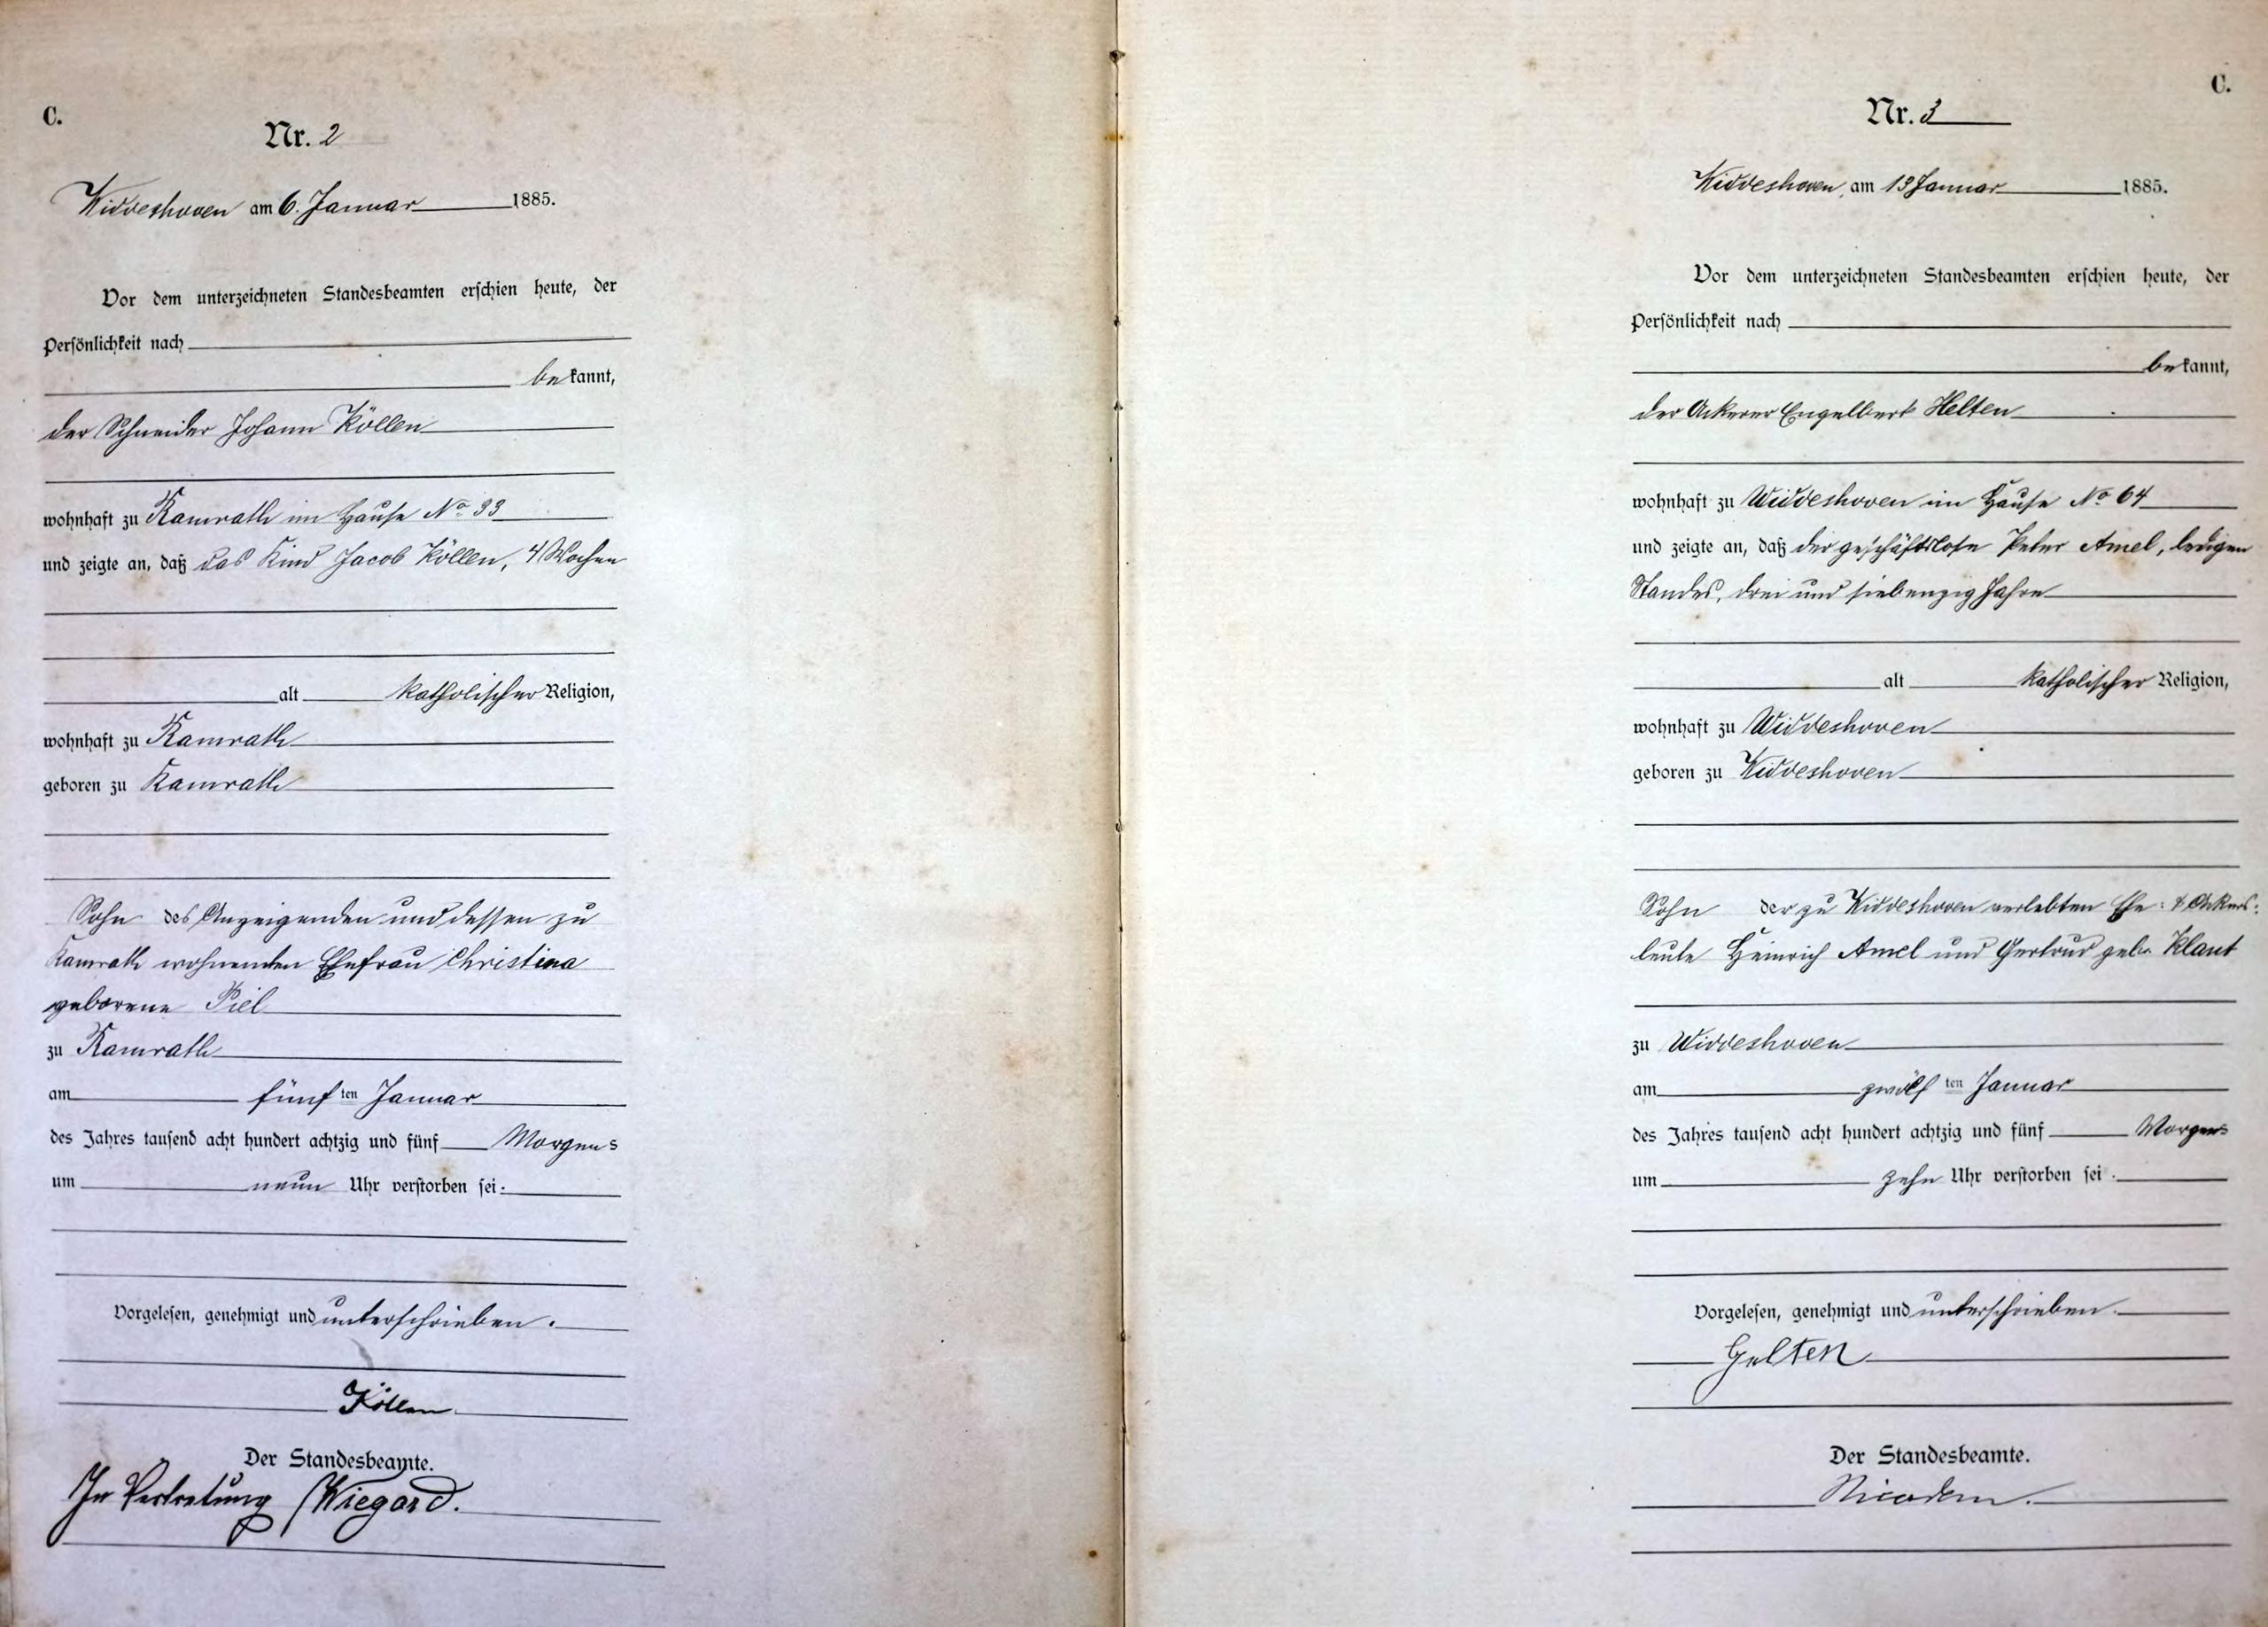 C.
Nr. 2
Widdeshoven am 6. Januar 1885.
Vor dem unterzeichneten Standesbeamten erschien heute, der
Persönlichkeit nach
bekannt,
der Schneider Johann Köllen
wohnhaft zu Ramrath im Hause No 33
und zeigte an, daß das Kind Jacob Köllen, 4 Wochen
alt katholischer Religion,
wohnhaft zu Ramrath
geboren zu Ramrath
Sohn des Anzeigenden und dessen zu
Ramrath wohnenden Ehefrau Christina
geborene Piel
zu Ramrath
am fünften Januar
des Jahres tausend acht hundert achtzig und fünf Morgens
um neun Uhr verstorben sei.
Vorgelesen, genehmigt und unterschrieben.
Köllen
Der Standesbeamte.
In Vertretung Wiegard.
C.
Nr. 3
Widdeshoven, am 13 Januar 1885.
Vor dem unterzeichneten Standesbeamten erschien heute, der
Persönlichkeit nach
bekannt,
der Ackerer Engelbert Helten
wohnhaft zu Widdeshoven im Hause No 64
und zeigte an, daß der geschäftslose Peter Amel, ledigen
Standes, drei und siebenzig Jahre
alt katholischer Religion,
wohnhaft zu Widdeshoven
geboren zu Widdeshoven
Sohn der zu Widdeshoven verlebten Ehe- & Ackers-
leute Heinrich Amel und Gertrud geb. Klaut
zu Widdeshoven
am zwölften Januar
des Jahres tausend acht hundert achtzig und fünf Morgens
um zehn Uhr verstorben sei.
Vorgelesen, genehmigt und unterschrieben.
Helten
Der Standesbeamte.
Nicodem.